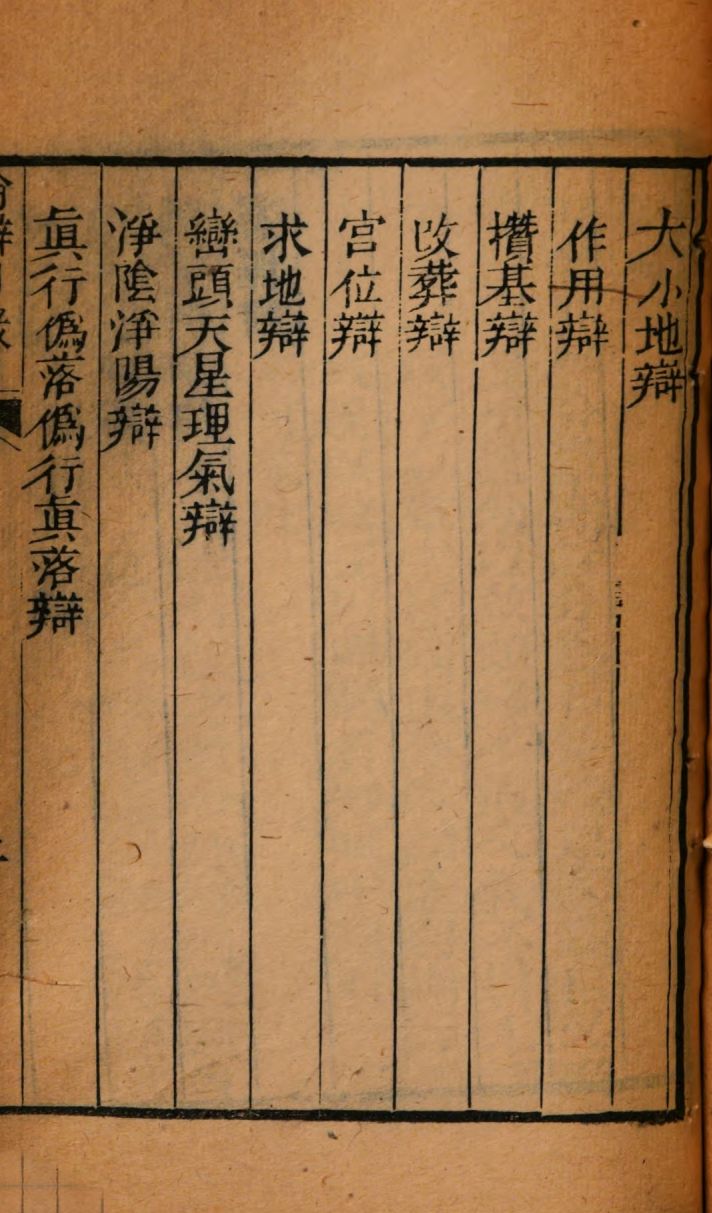 大小地辯
作用辯
攢基辯
改葬辯
宮位辯
求地辯
巒頭天星理氣辯
淨陰淨陽辯
眞行僞落僞行眞落辯